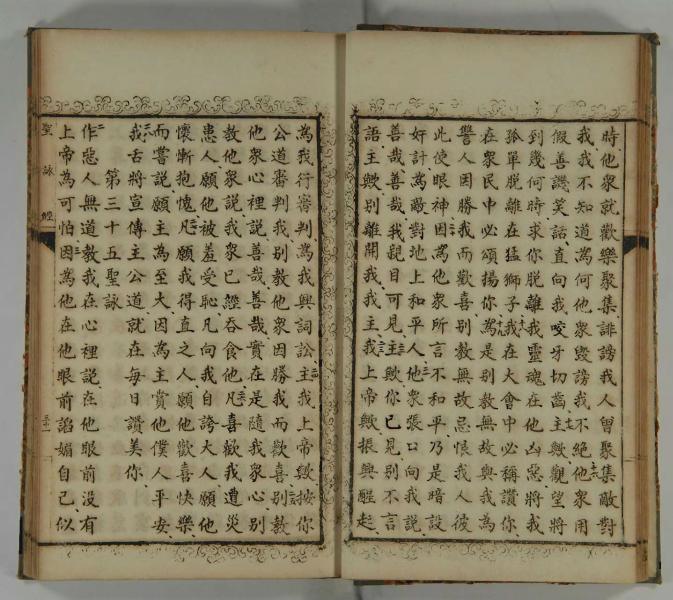 時他衆就歡樂聚集誹謗我人曾聚集敵對
我我不知道為何他衆毀謗我不絕他衆用
假善譏笑話直向我咬牙切齒主歟觀望將
到幾何時求你脫離我靈魂在他凶惡將我
孤單脫離在猛獅子我在大會中必稱讚你
在衆民中必頌揚你為是別教無故與我為
讐人因勝我而歡喜別教無故忌恨我人彼
此使眼神因為他衆所言不和平乃是暗設
奸計為敵對地上和平人他衆張口向我說
善哉善哉我親目可見主歟你已見別不言
語主歟別離開我我主我上帝歟振興醒起
為我行審判為我興詞訟主我上帝歟按你
公道審判我別教他衆因勝我而歡喜別教
他衆心裡說善哉善哉實在是隨我衆心別
教他衆說我衆已經吞食他凡喜歡我遭災
患人願他被羞受恥凡向我自誇大人願他
懷慚抱愧凡願我得直之人願他歡喜快樂
而嘗說願主為至大因為主賞他僕人平安
我舌將宣傳主公道就在每日讚美你
第三十五聖詠
作惡人無道教我在心裡說在他眼前没有
上帝為可怕因為他在他眼前諂媚自己似
聖詠經